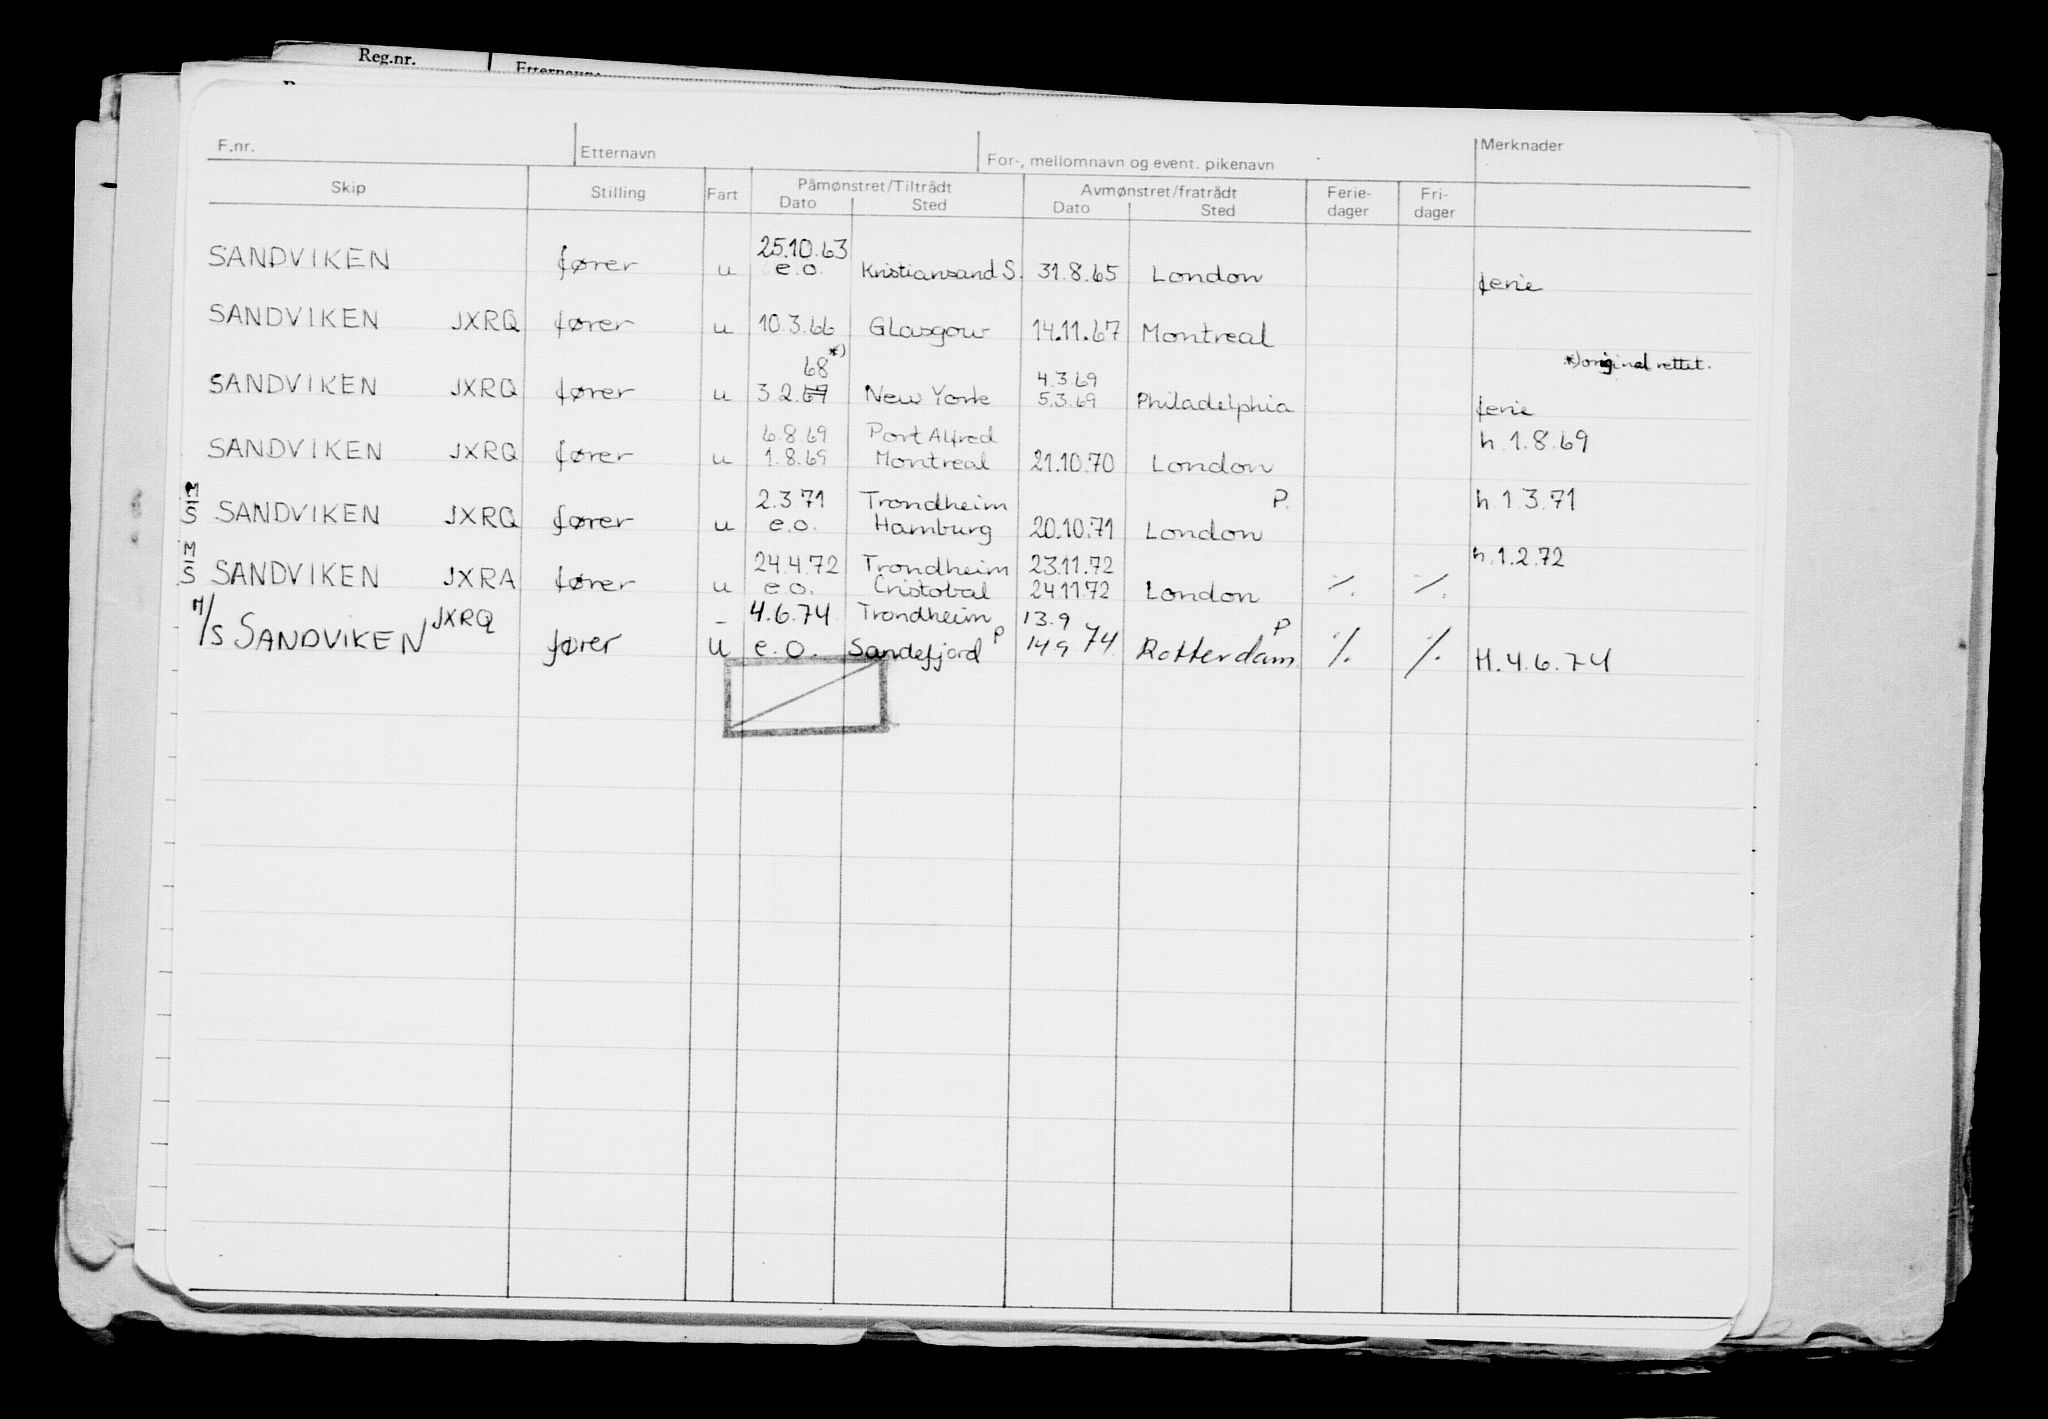 Reg.nr. Etternavn:
F.nr. Etternavn For-, mellomnavn og event. pikenavn Merknader
Skip Stilling Fart Påmønstret/Tiltrådt Avmønstret/fratrådt Ferie- Fri-
Dato Sted Dato Sted dager dager
25.10.63
SANDVIKEN fører u e.o. Kristiansand S. 31.8.65 London ferie
SANDVIKEN JXRQ fører u 10.3.66 Glasgow 14.11.67 Montreal
68 *) *) original rettet.
4.3.69
SANDVIKEN JXRQ fører u 3.2.69 New York 5.3.69 Philadelphia ferie
6.8.69 Port Alfred h. 1.8.69
SANDVIKEN JXRQ fører u 1.8.69 Montreal 21.10.70 London
2.3.71 Trondheim P. h. 1.3.71
M/S SANDVIKEN JXRQ fører u e.o. Hamburg 20.10.71 London
24.4.72 Trondheim 23.11.72 h.1.2.72
M/S SANDVIKEN JXRA fører u e.o. Cristobal 24.11.72 London ./. ./.
JXRQ – 4.6.74 Trondheim 13.9 P
M/S SANDVIKEN fører u e.o. Sandefjord P 14.9 74 Rotterdam ./. ./. H.4.6.74